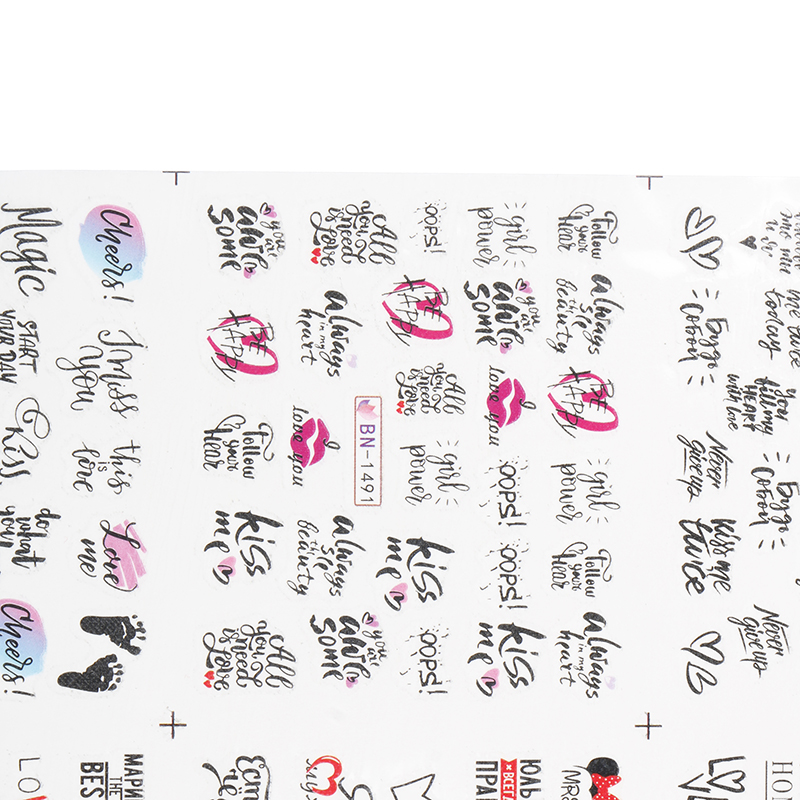 Magic
Cheers!
START
YOUR DAY
I miss
You
Kiss
this
is
love
do
what
you
Love
me
Cheers!
you are
awe
some
All
You
need
is Love
OOPS!
girl
power
Follow
your
Hear
BE
HAPPY
always
in my
heart
BE
HAPPY
you are
awe
some
always
beauty
All
You
need
is Love
love you
BE
HAPPY
Follow
your
Hear
love you
BN-1491
girl
power
OOPS!
girl
power
kiss
me
always
beauty
kiss
me
OOPS!
Follow
your
Hear
All
You
need
is Love
you are
awe
some
OOPS!
kiss
me
always
in my
heart
today
Будь
собой
You
fill my
HEART
with love
Never
give up
Будь
собой
Kiss me
twice
Never
give up
THE
BES
Есть
ЮЛЬ
ВСЕГ
ПРА
MRS